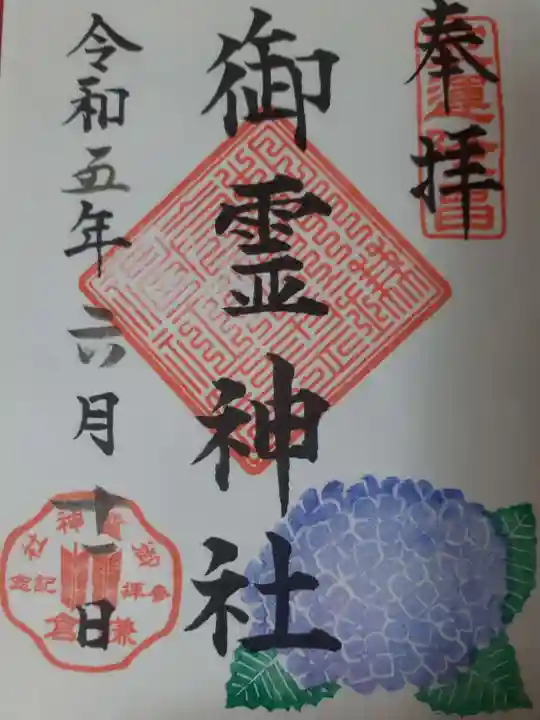 奉拝
御霊神社
令和五年六月十一日
御霊神社
参拝記念
鎌倉